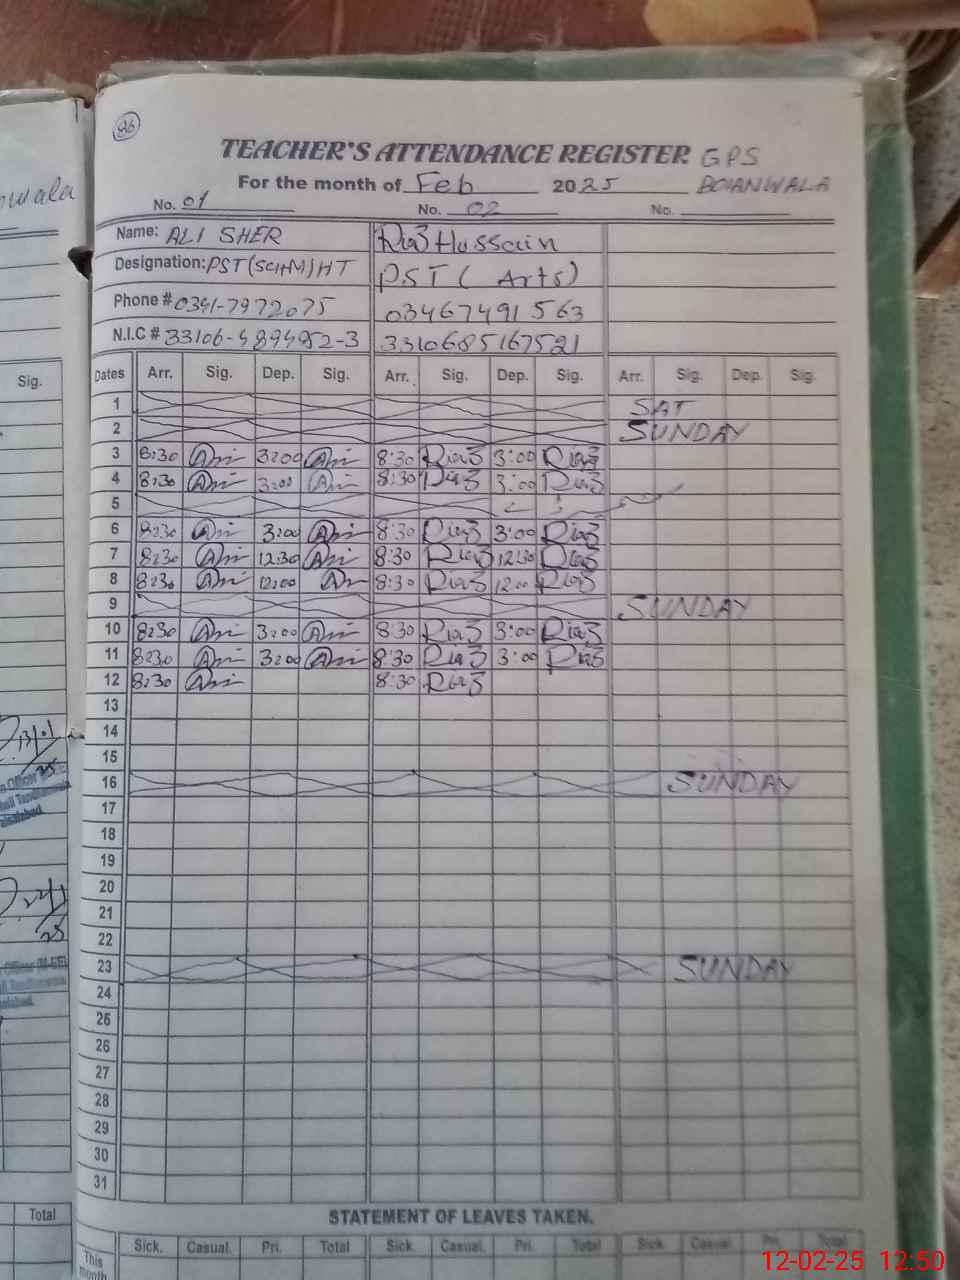 86
TEACHER'S ATTENDANCE REGISTER GPS
For the month of Feb 2025 BOIANWALA
No. 01 No. 02 No.
Name: ALI SHER Riaz Hussain
Designation: PST(SCI+M)HT PST ( Arts)
Phone # 0341-7972075 03467491563
N.I.C # 33106-4894952-3 3310685167521
Sig. Dates Arr. Sig. Dep. Sig. Arr. Sig. Dep. Sig. Arr. Sig. Dep. Sig.
1 SAT
2 SUNDAY
3 8:30 3:00 8:30 Riaz 3:00 Riaz
4 8:30 3:00 8:30 Riaz 3:00 Riaz
5
6 8:30 3:00 8:30 Riaz 3:00 Riaz
7 8:30 12:30 8:30 Riaz 12:30 Riaz
8 8:30 12:00 8:30 Riaz 12:00 Riaz
9 SUNDAY
10 8:30 3:00 8:30 Riaz 3:00 Riaz
11 8:30 3:00 8:30 Riaz 3:00 Riaz
12 8:30 8:30 Riaz
13
14
15
16 SUNDAY
17
18
19
20
21
22
23 SUNDAY
24
25
26
27
28
29
30
31
STATEMENT OF LEAVES TAKEN.
Total Sick. Casual. Pri. Total Sick. Casual. Pri. Total Sick. Casual. Pri. Total
This
month
12-02-25 12:50